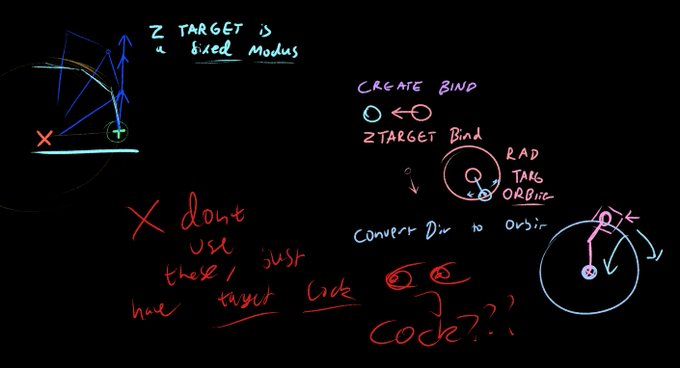 Z TARGET is
a fixed Modus
CREATE BIND
ZTARGET Bind
RAD
TARG
ORBiT
Convert Dir to Orbit
X dont
use
these, just
have target lock
Cock???